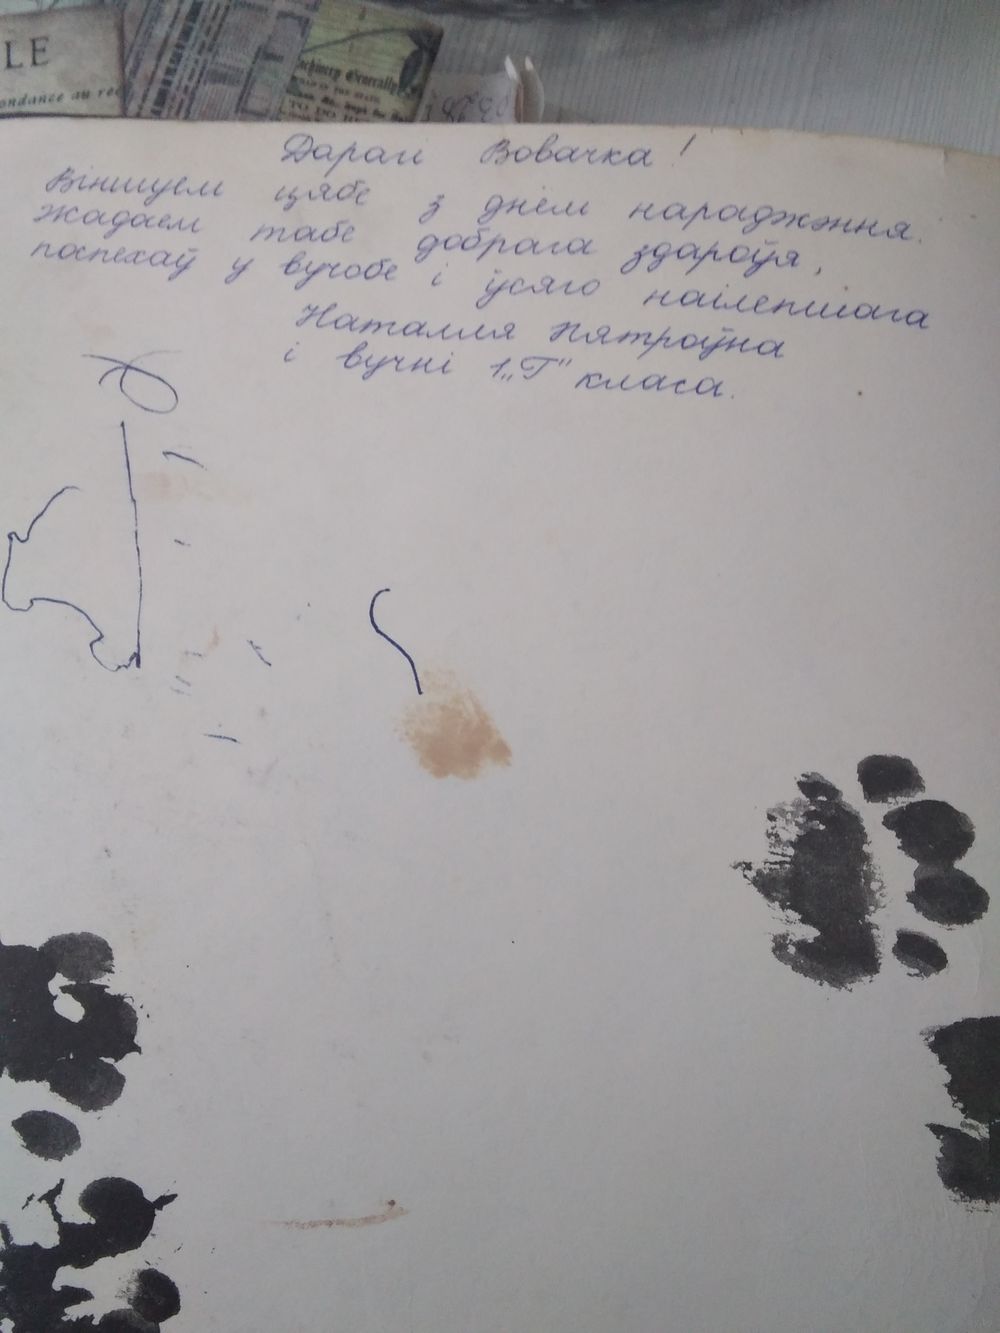 LE
ondance au re
achinery Generally
Дарагі Вовачка!
Віншуем цябе з днём нараджэння.
Жадаем табе добрага здароўя,
поспехаў у вучобе і ўсяго найлепшага
Наталля Пятроўна
і вучні 1„Г" класа.